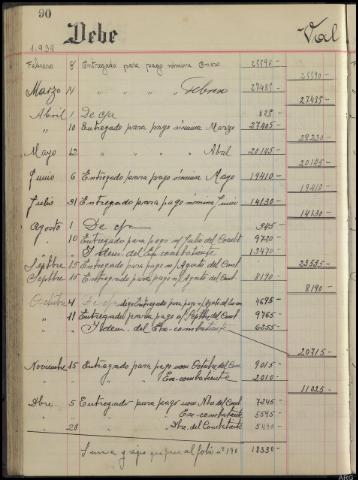 90
1.938 Debe Val
Febrero 8 Entregado para pago nómina Enero 25590-
25590-
Marzo 14 " " " " Febrero 27485-
27485-
Abril 1 De c/a 825-
" 10 Entregado para pago nómina Marzo 27405-
29230-
Mayo 12 " " " " Abril 20145-
20145-
Junio 6 Entregado para pago nómina Mayo 19410-
19410-
Julio 31 Entregado para pago nómina Junio 14130-
14130-
Agosto 1 De c/a 345-
" 10 Entregado para pago n/ Julio del Combt 9720-
" Idem. del Ex combatiente 13470-
Septbre 15 Entregado para pago n/ Agosto del Comb 23535-
Septbre 15 Entregado para pago n/ Agosto del Comb 8190-
8190-
Octubre 4 Entregado para pago n/ Agosto 4695-
" 11 Entregado para pago n/ Septbre del Comb 9765-
" Idem. del Ex-combatiente 6255-
20715-
Noviembre 15 Entregado para pago nom Octubre del Com 9015-
" " Ex-combatiente 2010-
11025-
Dbre. 5 Entregado para pago nom Nbre del Comb 7245-
Ex-combatiente 5595-
" 28 Dbre. del Combatiente 5490-
Suma y sigue que pasa al folio nº 190 18330-